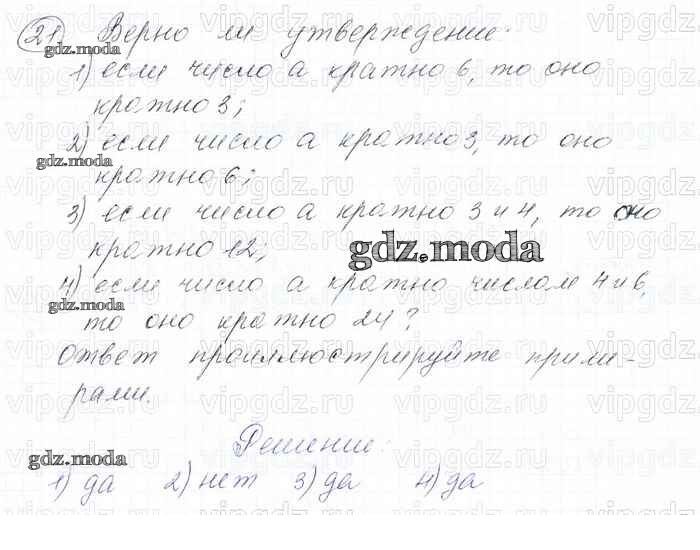 21. Верно ли утверждение:
gdz.moda
1) если число а кратно 6, то оно
кратно 3;
2) если число а кратно 3, то оно
gdz.moda
кратно 6;
3) если число а кратно 3 и 4, то оно
кратно 12;
gdz.moda
4) если число а кратно числам 4 и 6,
gdz.moda
то оно кратно 24?
Ответ проиллюстрируйте приме-
рами.
Решение:
gdz.moda
1) да 2) нет 3) да 4) да